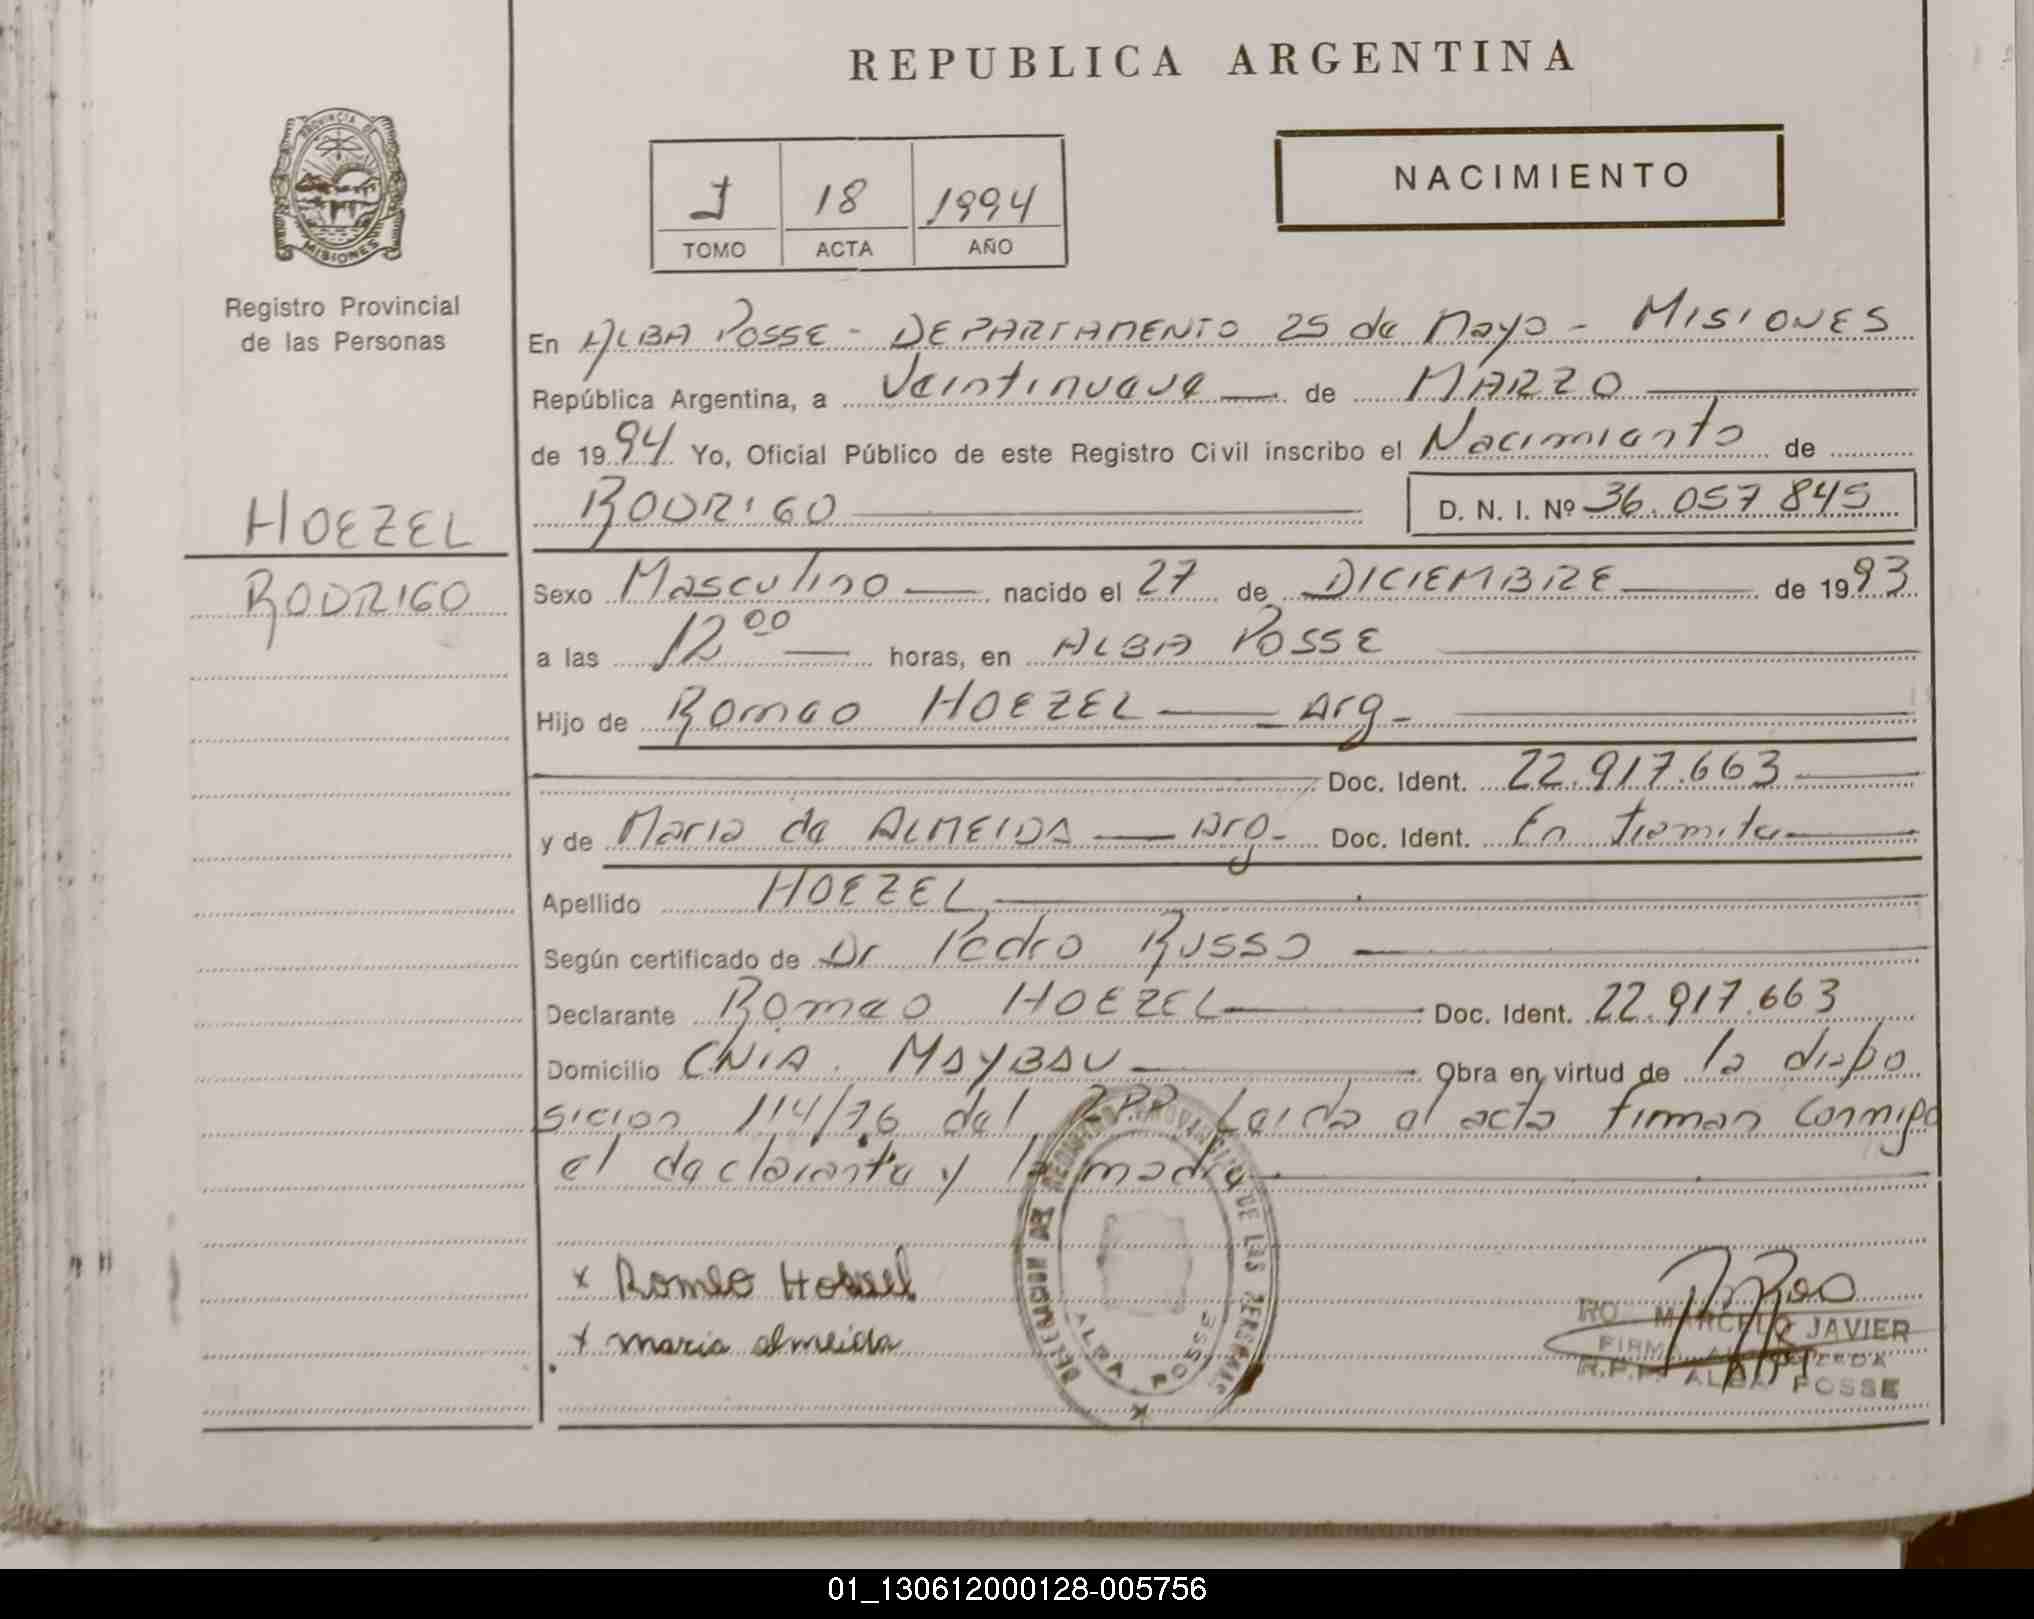 REPUBLICA ARGENTINA
PROVINCIA DE
MISIONES
Registro Provincial
de las Personas
I 18 1994
TOMO ACTA AÑO
NACIMIENTO
En ALBA POSSE - DEPARTAMENTO 25 de Mayo - MISIONES
República Argentina, a Veintinueve de MARZO
de 1994 Yo, Oficial Público de este Registro Civil inscribo el Nacimiento de
HOEZEL
RODRIGO
RODRIGO D. N. I. Nº 36.057845
Sexo Masculino nacido el 27 de DICIEMBRE de 1993
a las 12 00 horas, en ALBA POSSE
Hijo de Romeo HOEZEL Arg-
Doc. Ident. 22.917.663
y de Maria de ALMEIDA Arg- Doc. Ident. En tramite
Apellido HOEZEL
Según certificado de Dr Pedro RUSSO
Declarante Romeo HOEZEL Doc. Ident. 22.917.663
Domicilio CNIA. MAYBAU Obra en virtud de la dispo
sicion 114/76 del RPP Leida el acta firman conmigo
el declarante y la madre
x Romeo Hoezel
x maria almeida
REGISTRO PROVINCIAL DE LAS PERSONAS
DELEGACION
ALBA POSSE
RO MARCELO JAVIER
FIRMA
R.P.P. ALBA POSSE
01_130612000128-005756